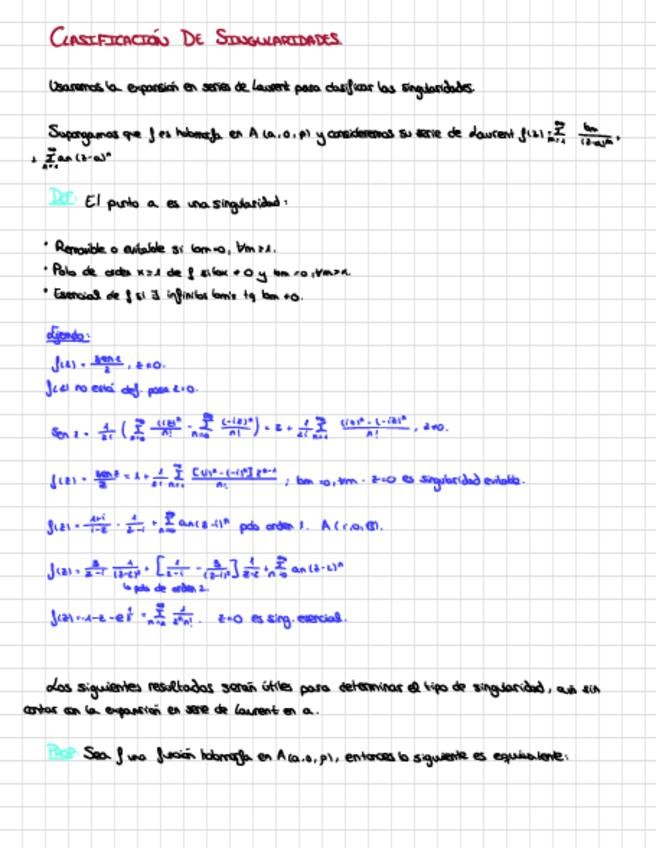 CLASIFICACIÓN DE SINGULARIDADES.
Usaremos la expansión en series de Laurent para clasificar las singularidades.
Supongamos que f es holomorfa en A(a,0,ρ) y consideremos su serie de Laurent f(z) = Σ bm/(z-a)^m +
+ Σ an(z-a)^n
DEF: El punto a es una singularidad:
· Removible o evitable si bm=0, ∀m≥1.
· Polo de orden k≥1 de f si bk ≠ 0 y bm=0, ∀m>k.
· Esencial de f si ∃ infinitos bm's tq bm ≠0.
Ejemplo:
f(z) = sen z / z, z≠0.
f(z) no está def. para z=0.
Sen z = 1/2i ( Σ (iz)^n/n! - Σ (-iz)^n/n! ) = z + 1/2i Σ ((iz)^n - (-iz)^n)/n! , z≠0.
f(z) = sen z / z = 1 + 1/2i Σ [(i)^n - (-i)^n] z^n-1 / n! ; bm=0, ∀m · z=0 es singularidad evitable.
polo orden 1.
polo de orden 2.
z=0 es sing. esencial.
Los siguientes resultados serán útiles para determinar el tipo de singularidad, aún sin
contar con la expansión en serie de Laurent en a.
PROP: Sea f una función holomorfa en A(a,0,ρ), entonces lo siguiente es equivalente: